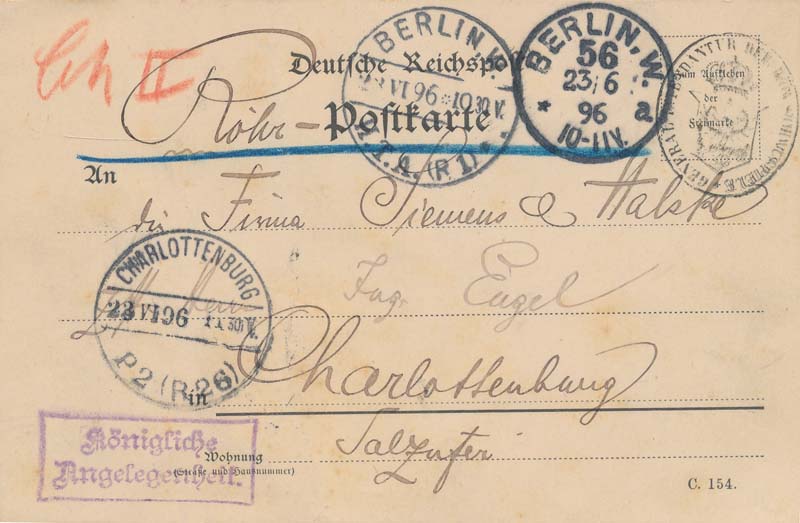 Ch II
Deutsche Reichspost
Röhr-Postkarte
BERLIN, W.
23 VI 96 * 10 30 V.
H.T.A. (R 1) *
BERLIN, W.
56
23/6
96
* a
10-11V.
GENERAL-INTENDANTUR DER KÖN. SCHAUSPIELE
Zum Aufkleben
der
Freimarke
An
die Firma Siemens & Halske
CHARLOTTENBURG
23 VI 96 1X 30 V.
P2 (R 26)
Ing. Engel
in Charlottenburg
Königliche
Angelegenheit.
Wohnung
(Straße und Hausnummer)
Salzufer
C. 154.